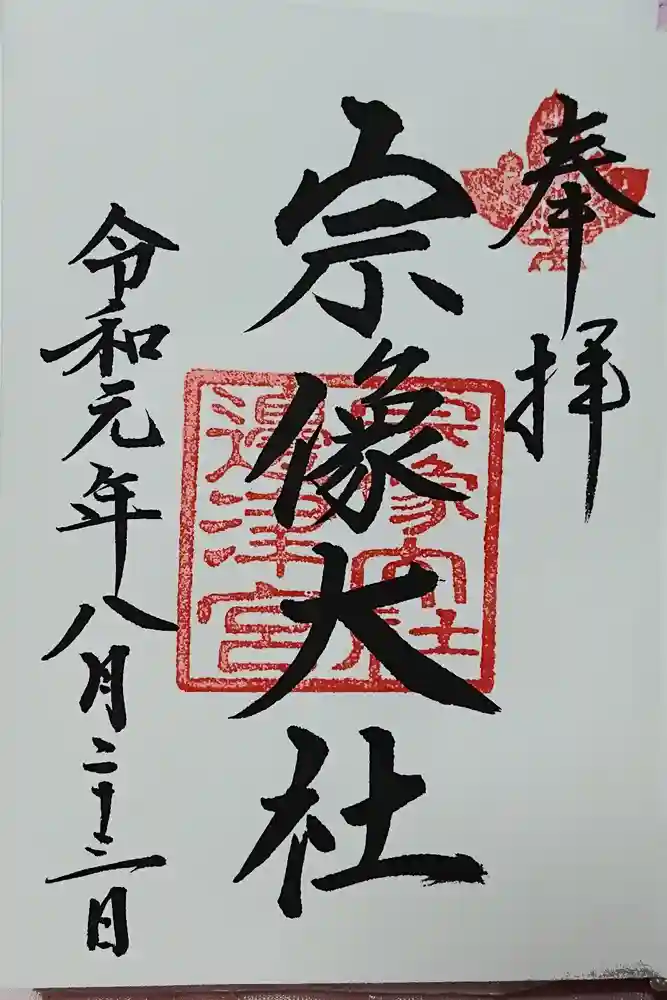 奉拝
宗像大社
宗像大社
邊津宮
令和元年八月二十三日